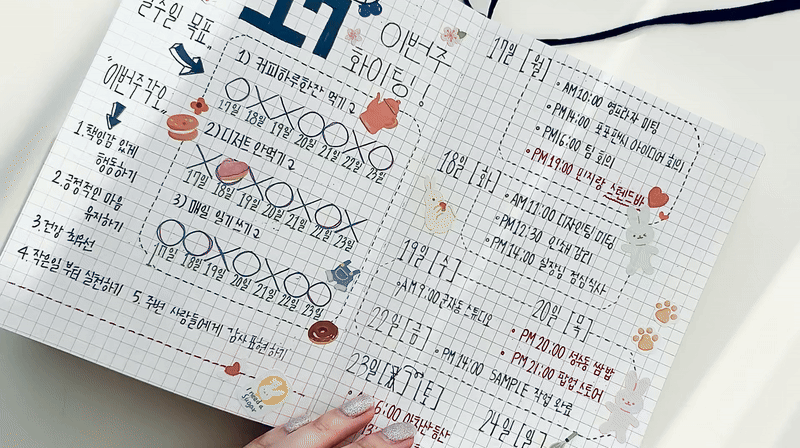 일주일 목표
이번주
화이팅!
"이번주각오"
1. 책임감 있게
행동하기
2. 긍정적인 마음
유지하기
3. 건강 최우선
4. 작은일 부터 실천하기
5. 주변 사람들에게 감사표현 하기
1) 커피하루한잔 먹기
17일 18일 19일 20일 21일 22일 23일
2) 디저트 안먹기
17일 18일 19일 20일 21일 22일 23일
3) 매일 일기 쓰기
17일 18일 19일 20일 21일 22일 23일
I need a
Sugar
17일 [월]
AM 10:00 영프라자 미팅
PM 14:00 포포팬시 아이디어 회의
PM 16:00 팀 회의
PM 19:00 민지랑 스탠드바
18일 [화]
AM 11:00 디자인팀 미팅
PM 12:30 인쇄 감리
PM 14:00 실장님 점심식사
19일 [수]
AM 9:00 스튜디오
20일 [목]
PM 20:00 성수동 쌈밥
PM 21:00 팝업 스토어
22일 [금]
PM 14:00 SAMPLE 작업 완료
23일 [토]
6:00 아차산등산
24일 [일]